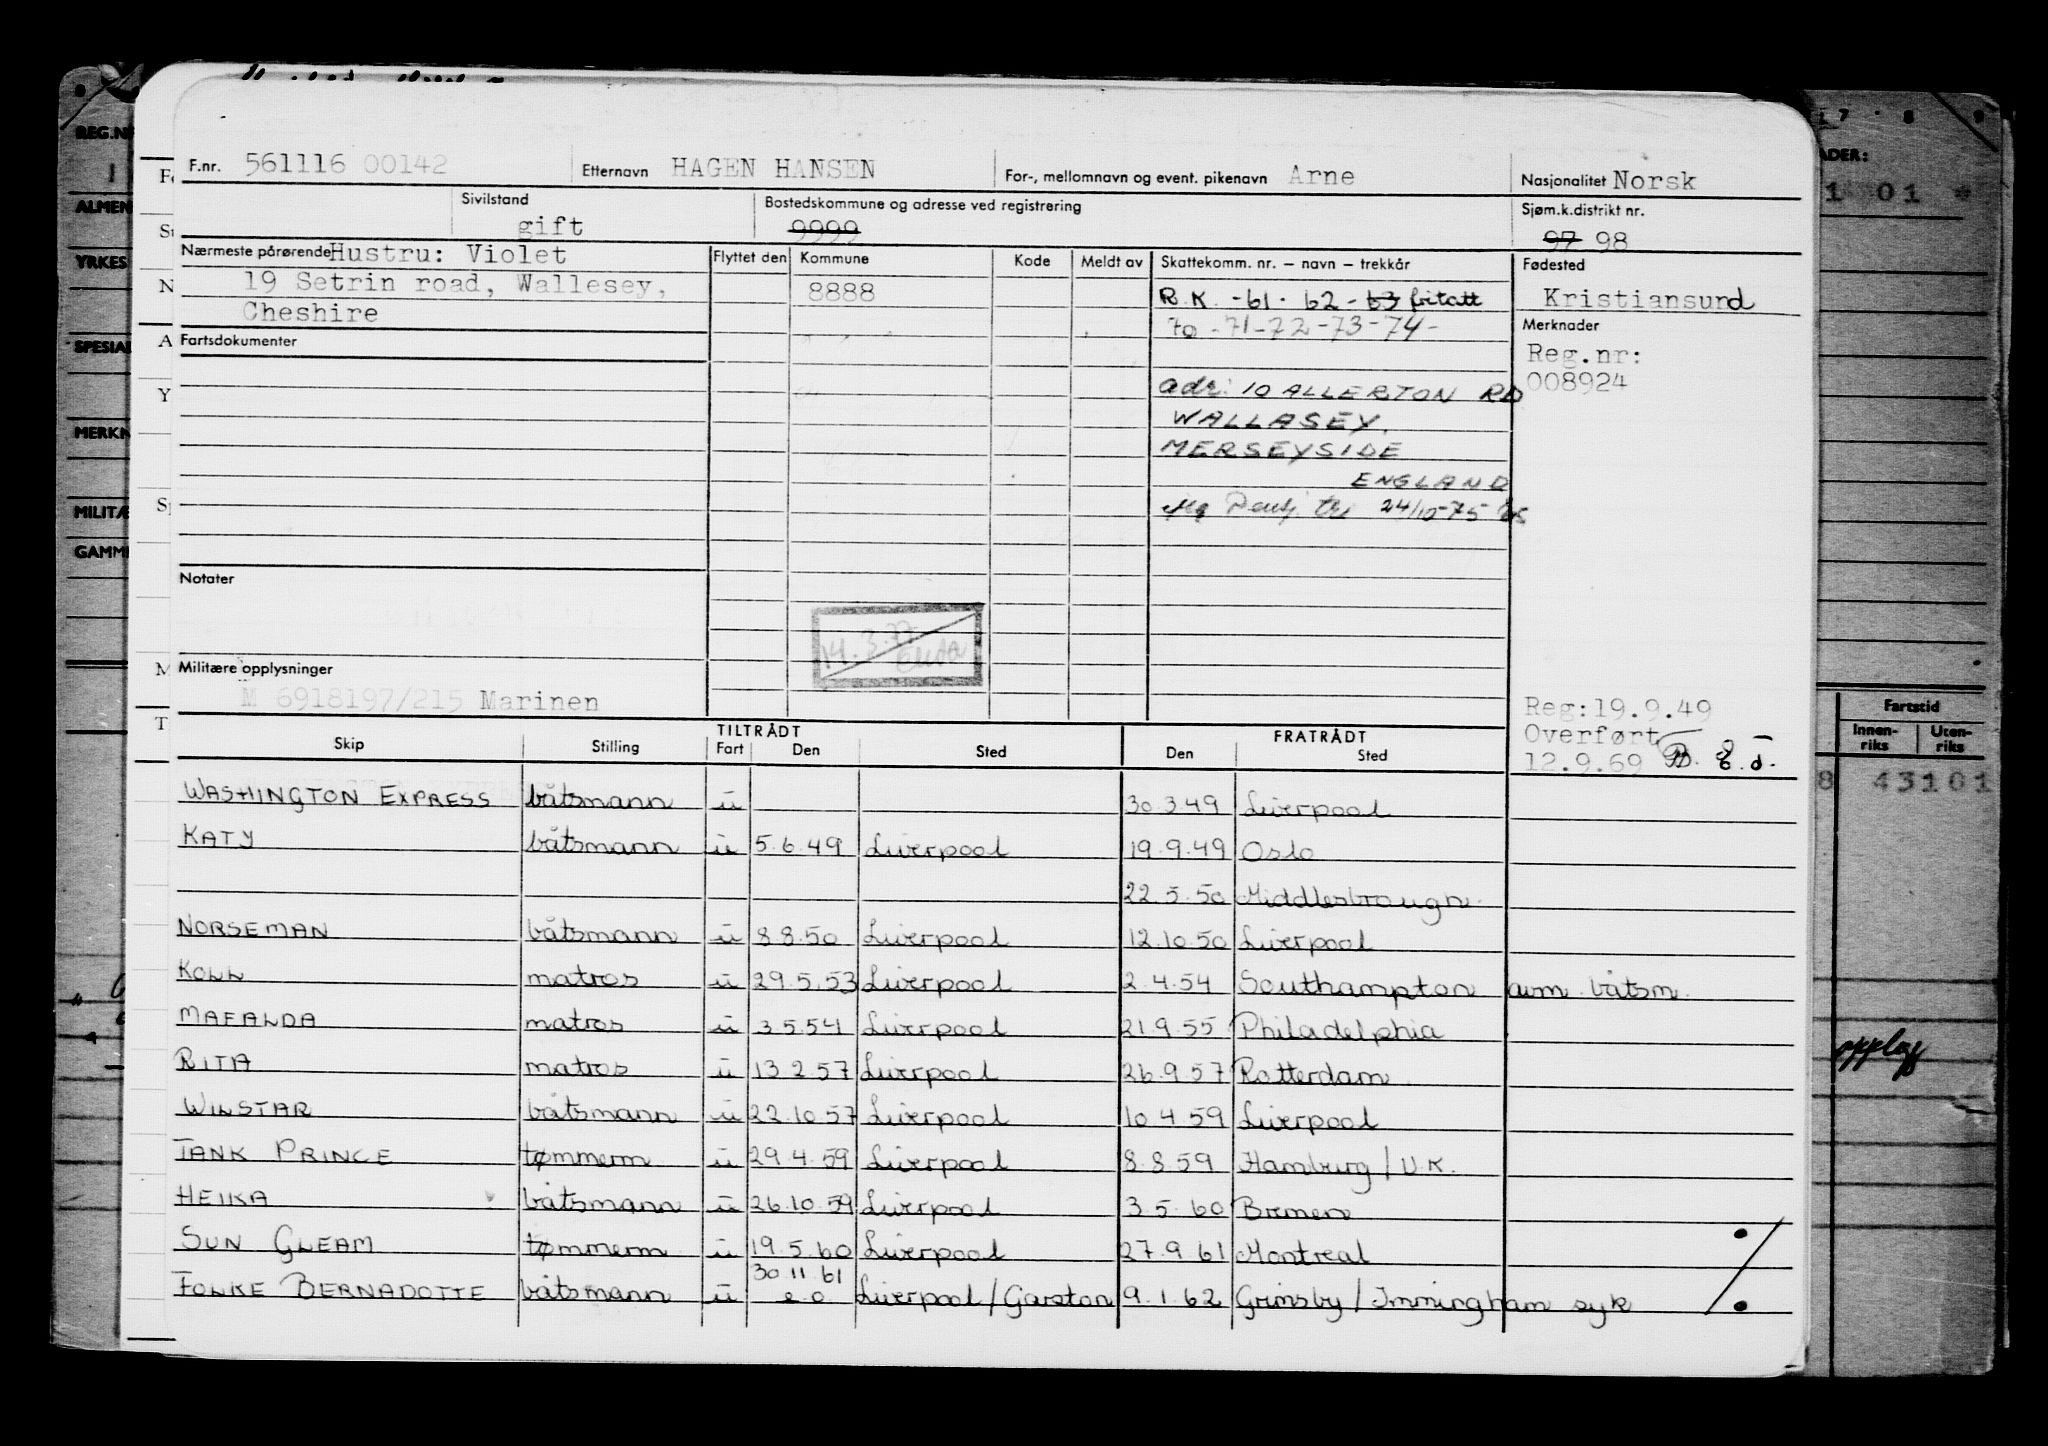 F.nr. 561116 00142 Etternavn HAGEN HANSEN For-, mellomnavn og event. pikenavn Arne Nasjonalitet Norsk
Sivilstand gift Bostedskommune og adresse ved registrering 9999 Sjøm.k.distrikt nr. 97 98
Nærmeste pårørende Hustru: Violet
19 Setrin road, Wallesey,
Cheshire
Flyttet den Kommune Kode Meldt av Skattekomm. nr. – navn – trekkår
8888
R.K. -61. 62 - 63 fritatt
70 -71-72-73-74-
Fødested
Kristiansund
Merknader
Reg.nr:
008924
Fartsdokumenter
adr: 10 ALLERTON RD
WALLASEY.
MERSEYSIDE
ENGLAND
24/10-75
Notater
14.3.77
Militære opplysninger
M 6918197/215 Marinen
Reg:19.9.49
Overført
12.9.69
TILTRÅDT FRATRÅDT
Skip Stilling Fart Den Sted Den Sted
WASHINGTON EXPRESS båtsmann u 30.3.49 Liverpool
KATY båtsmann u 5.6.49 Liverpool 19.9.49 Oslo
22.5.50 Middlesbrough
NORSEMAN båtsmann u 8.8.50 Liverpool 12.10.50 Liverpool
KOLL matros u 29.5.53 Liverpool 2.4.54 Southampton avm båtsm.
MAFALDA matros u 3.5.54 Liverpool 21.9.55 Philadelphia
RITA matros u 13.2.57 Liverpool 26.9.57 Rotterdam
WILSTAR båtsmann u 22.10.57 Liverpool 10.4.59 Liverpool
TANK PRINCE tømmerm u 29.4.59 Liverpool 8.8.59 Hamburg / U.K.
HEIKA båtsmann u 26.10.59 Liverpool 3.5.60 Bremen
SUN GLEAM tømmerm u 19.5.60 Liverpool 27.9.61 Montreal
30.11.61
FOLKE BERNADOTTE båtsmann u e.o. Liverpool / Garston 9.1.62 Grimsby / Immingham syk
REG.N
ALMEN
YRKES
SPESIAL
MERKN
MILITÆ
GAMM
7 8 9
ADER:
1 01 *
Fartstid
Innen-riks Uten-riks
8 43101
opplag